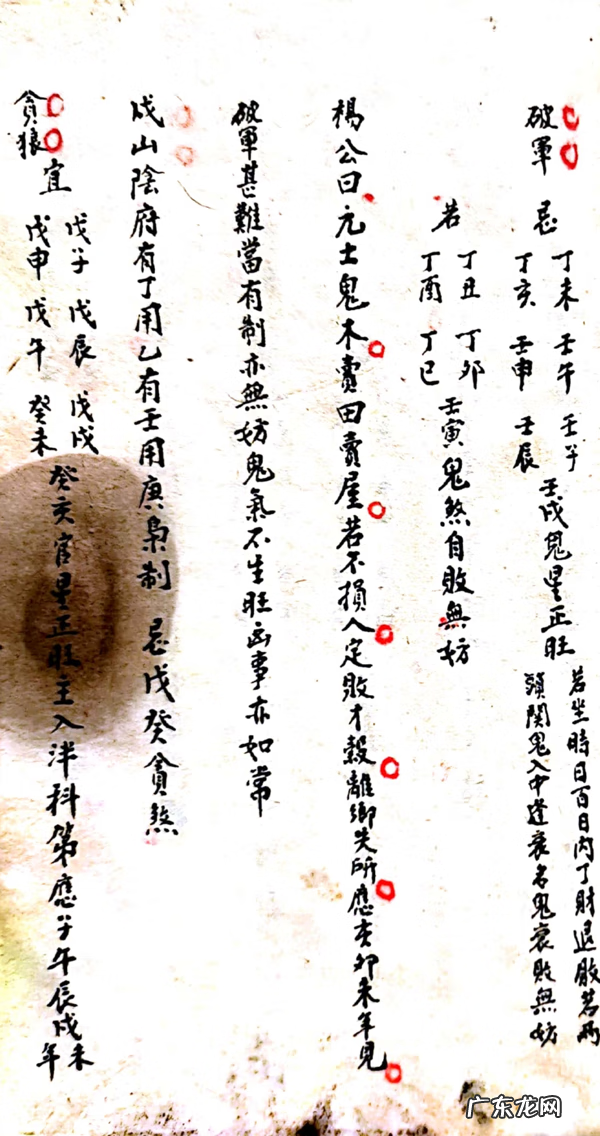 破軍 忌 丁未 壬午 壬子
丁亥 壬申 壬辰
壬戌鬼星正旺
若坐時日百日內丁財退敗若兩
頭関鬼入中逢衰名鬼衰敗無妨
若 丁丑 丁卯
丁酉 丁巳
壬寅鬼煞自敗無妨
楊公曰元士鬼不賣田賣屋若不損人定敗才穀離鄉失所應亥卯未年見
破軍甚難當有制亦無妨鬼氣不生旺凶事亦如常
戌山陰府有丁用乙有壬用庚梟制 忌戊癸貪煞
貪狼 宜 戊子 戊辰 戊戌
戊申 戊午 癸未
癸亥官星正旺主入泮科第應子午辰戌未年
广东龙网